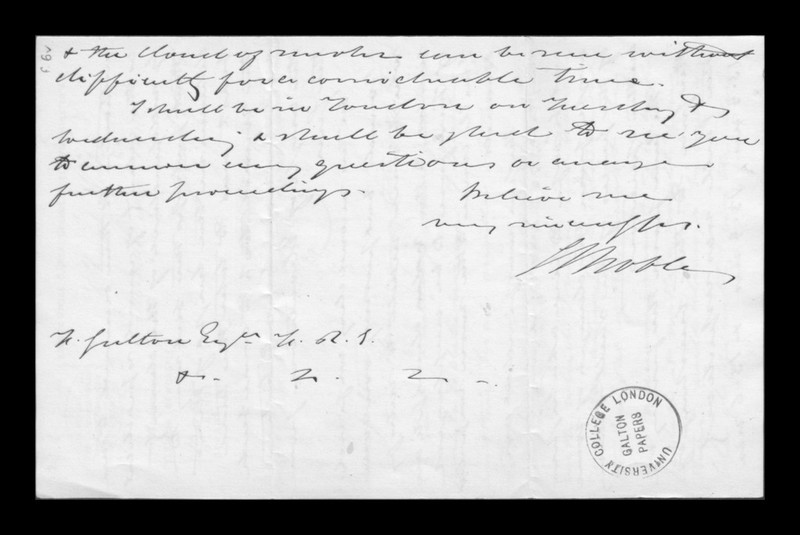 & the cloud of smoke can be seen without
difficulty for a considerable time.
I shall be in London on Tuesday &
Wednesday & shall be glad to see you
to answer any questions or arrange
further proceedings.
Believe me
very sincerely yrs.
Noble
F. Galton Esqre F. R. S.
&. &. &.
UNIVERSITY COLLEGE LONDON
GALTON
PAPERS